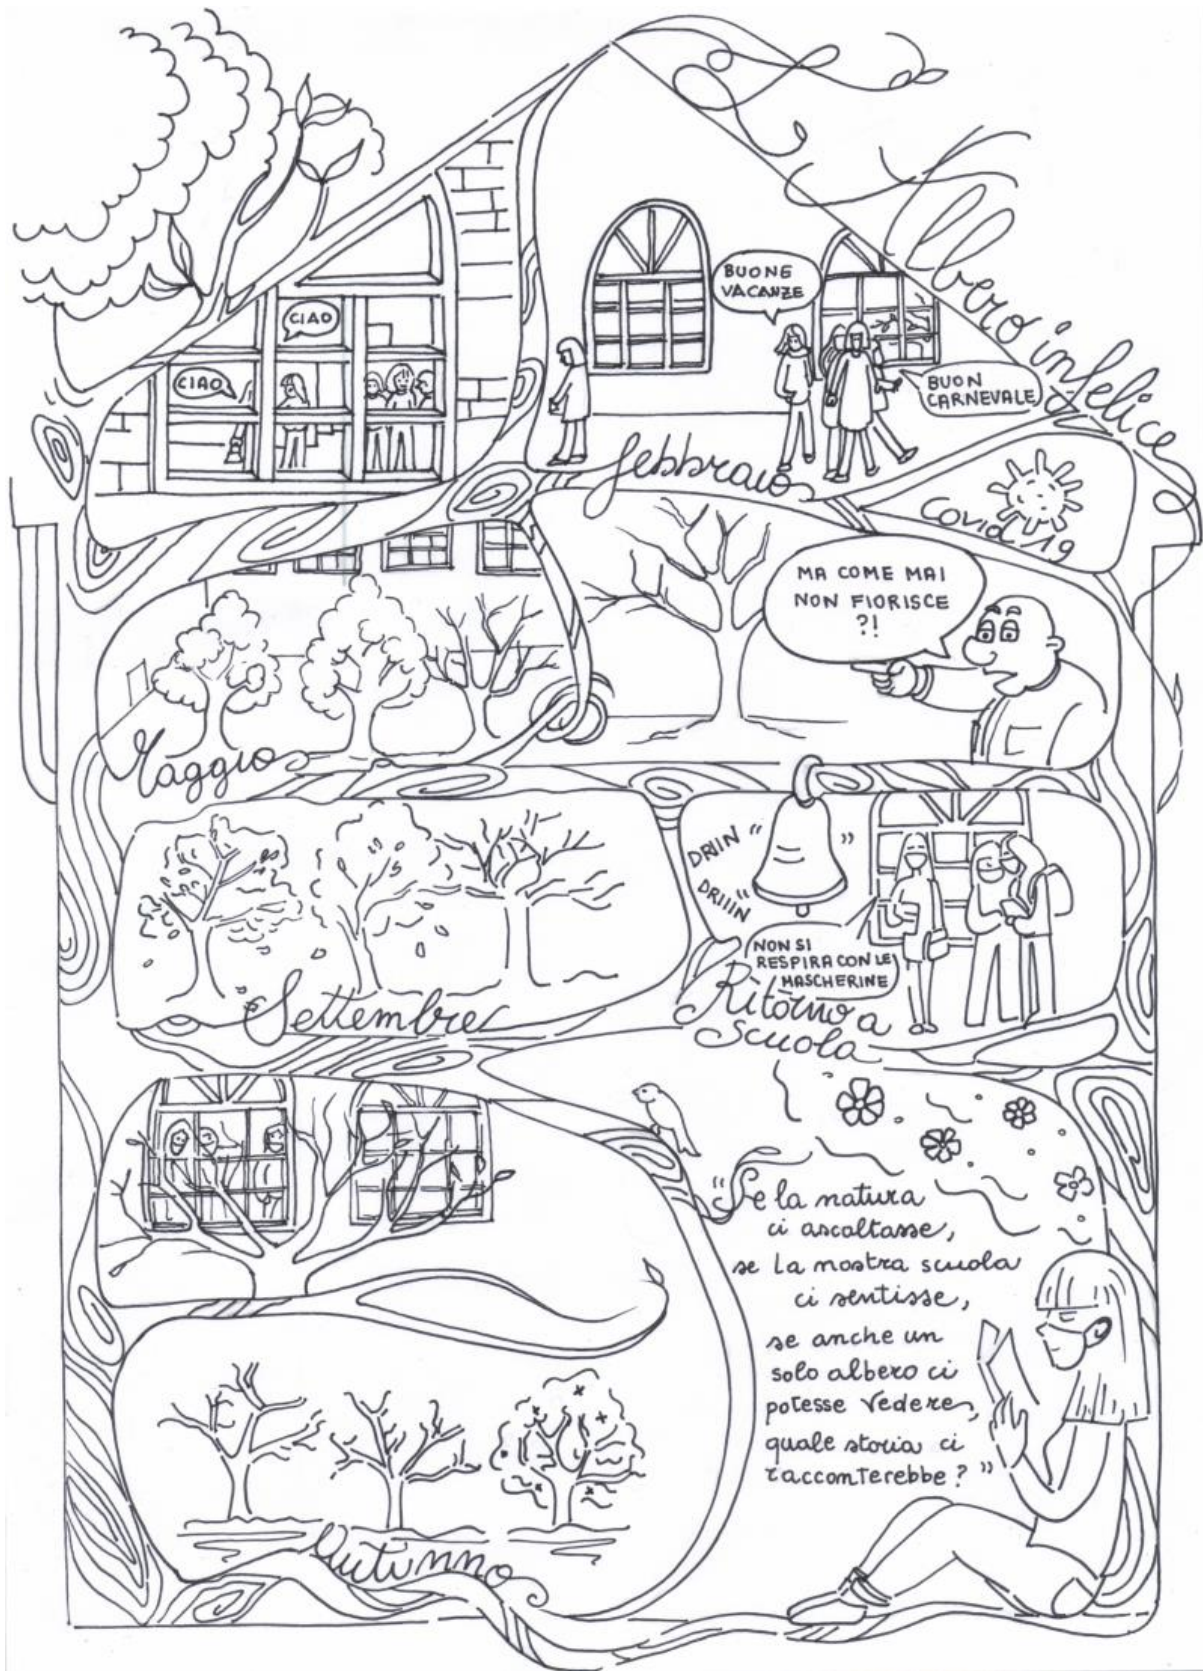 Albero infelice
CIAO
CIAO
BUONE
VACANZE
BUON
CARNEVALE
febbraio
Covid 19
MA COME MAI
NON FIORISCE
?!
Maggio
DRIIN "
"
DRIIIN "
NON SI
RESPIRA CON LE
MASCHERINE
Settembre
Ritorno a
scuola
"Se la natura
ci ascoltasse,
se la nostra scuola
ci sentisse,
se anche un
solo albero ci
potesse vedere,
quale storia ci
racconterebbe?"
Autunno